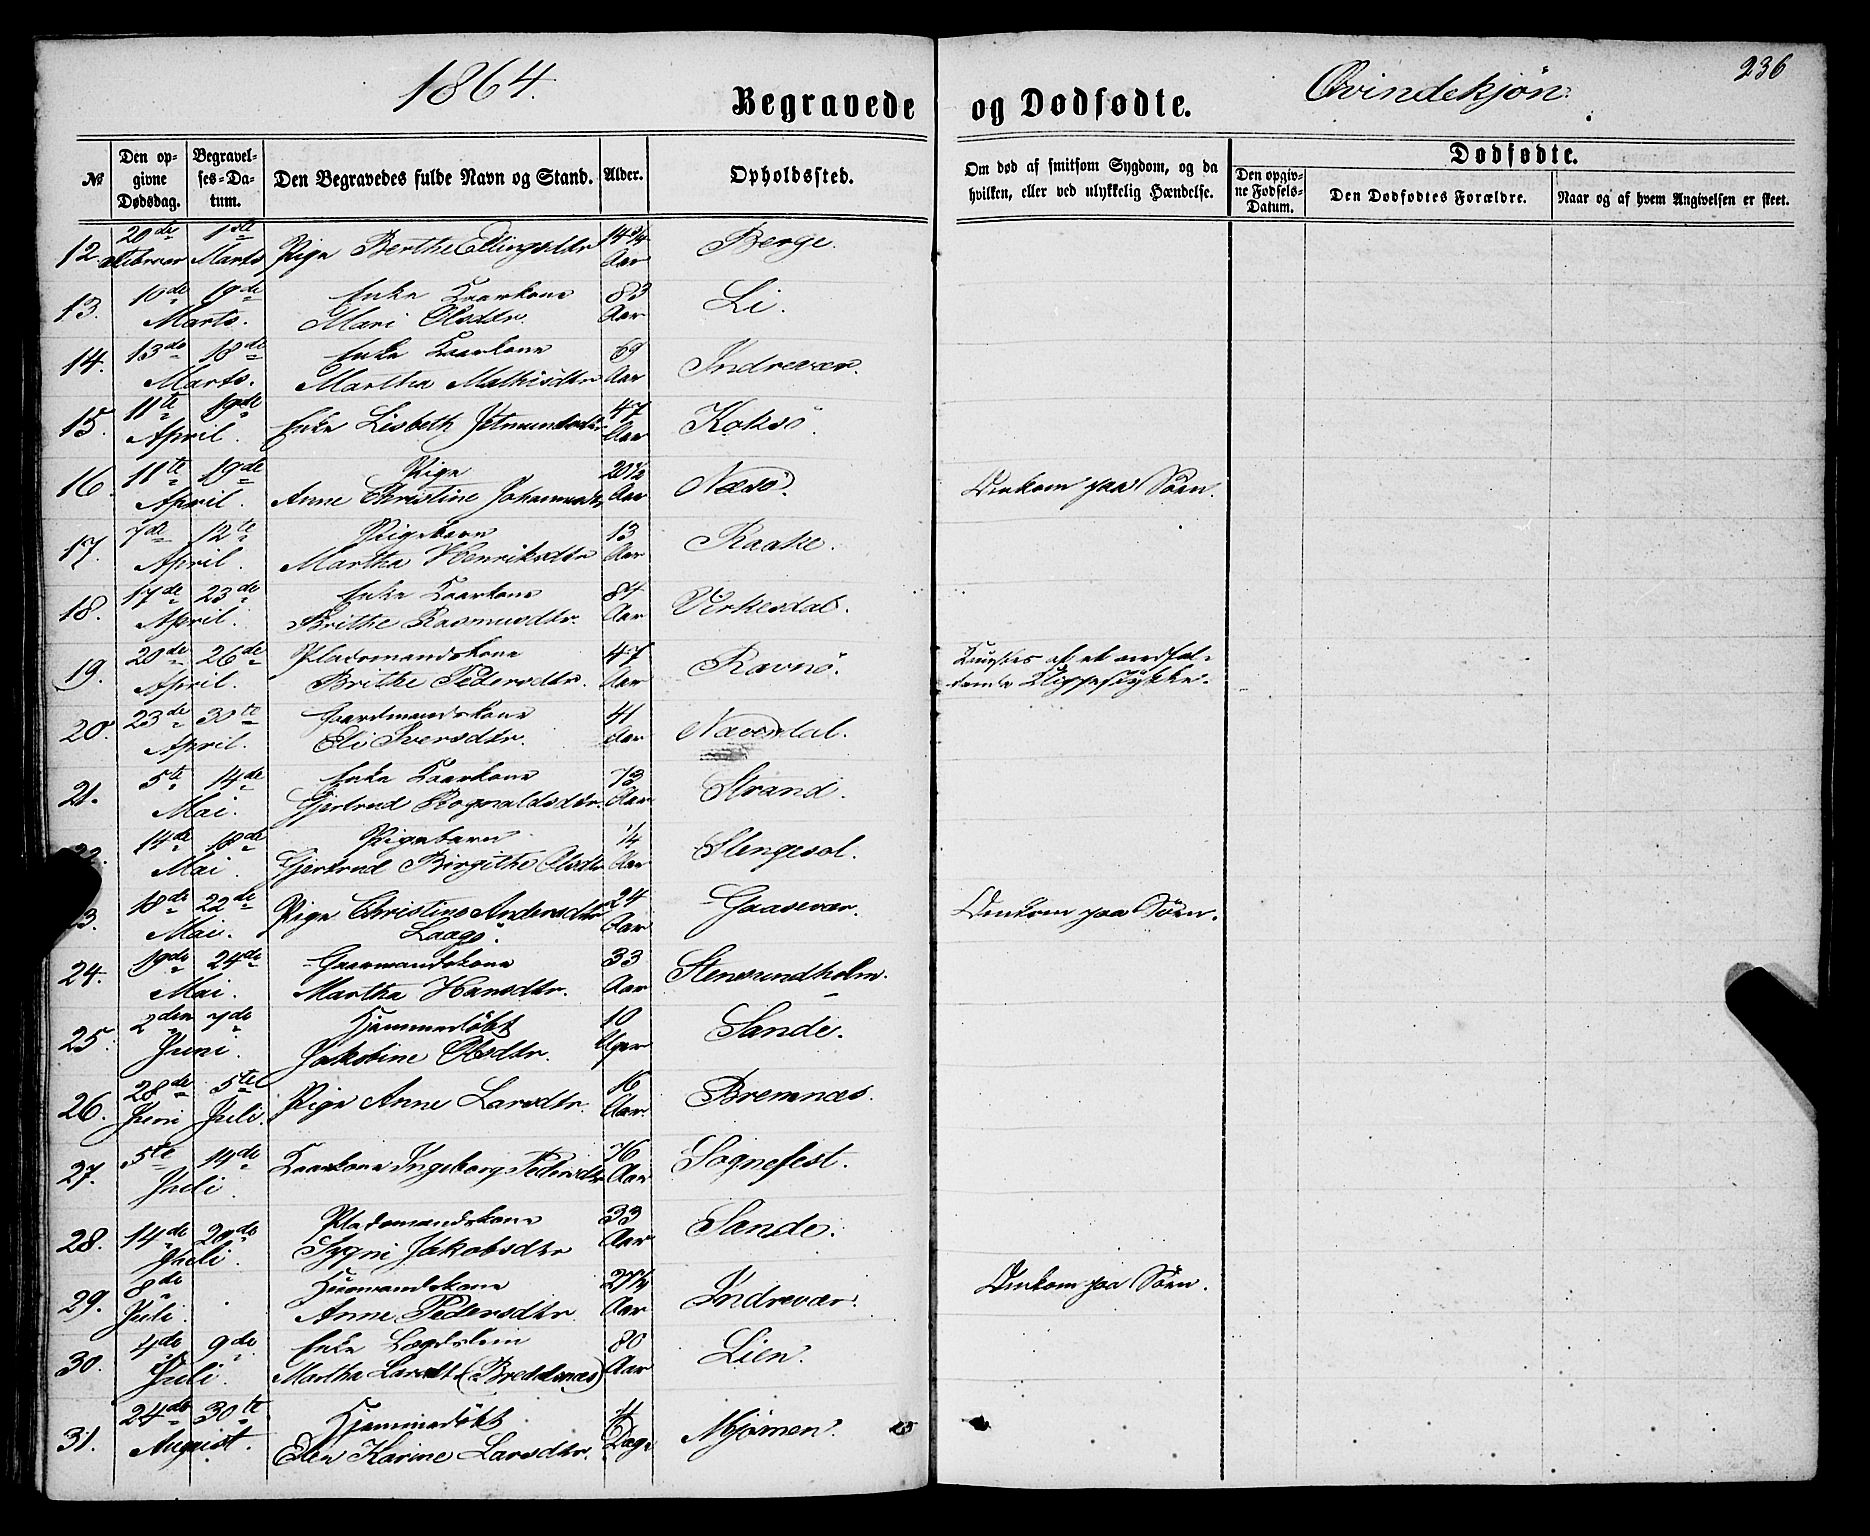 1864.
Begravede og Dødfødte.
Qvindekjøn:
236
№
Den op-
givne
Dødsdag.
Begravel-
ses-Da-
tum.
Den Begravedes fulde Navn og Stand.
Alder.
Opholdssted.
Om død af smitsom Sygdom, og da
hvilken, eller ved ulykkelig Hændelse.
Dødfødte.
Den opgiv-
ne Fødsels-
Datum.
Den Dødfødtes Forældre.
Naar og af hvem Angivelsen er skeet.
20de 1ste 14 3/4
12. Februar Marts Pige Berthe Ellingsdtr Aar Berge.
10de 19de Enke Kaarkone 83
13. Marts. Mari Olsdtr. Aar Li.
13de 18de Enke Kaarkone 69
14. Marts. Martha Mathisdtr Aar Indrevær.
11te 19de 47
15. April. Enke Lisbeth Aar Koksø.
11te 19de Pige 20 1/2
16. April. Anne Christine Aar Næsø. Omkom paa Søen.
7de 12te Pigebarn 13
17. April. Martha Henriksdtr Aar Raake.
17de 23de Enke Kaarkone 84
18. April. Brithe Rasmusdtr. Aar Virkesdal.
20de 26de Pladsmandskone 47
19. April. Brithe Pedersdtr. Aar Ravnø. Knustes af et nedfal-
dende Klippestykke.
23de 30te Gaardmandskone 41
20. April. Eli Iversdtr. Aar Nævesdal.
5te 14de Enke Kaarkone 73
21. Mai. Gjertrud Rognaldsdtr. Aar Strand.
14de 18de Pigebarn 1/4
Mai. Gjertrud Birgithe Olsdtr Aar Stengesol.
18de 22de Pige Christine Andersdtr 24
Mai. Laagø. Aar Gaasevær. Omkom paa Søen.
19de 24de Gaarmandskone 33
24. Mai. Martha Hansdtr. Aar Stensundholm.
2den 7de Hjemmedøbt 10
25. Juni. Jakobine Olsdtr. Uger Sande.
28de 5te 16
26. Juni Juli. Pige Anne Larsdtr. Aar. Bremnæs.
5te 14de 76
27. Juli. Kaarkone Ingeborg Pedersdtr Aar Sognefest.
Pladsmandskone 33
28. 14de 20de Aar Sande.
Juli. Sygni Jakobsdtr
8de Huusmandskone 27 1/4
29. Juli. Anne Pedersdtr. Aar Indrevær. Omkom paa Søen.
4de 9de Enke Lægdslem 80
30. Juli. Martha Larsdt (Breddsnæs) Aar Lien.
24de 30te Hjemmedøbt
31. August. Elen Karine Larsdtr. Dage Mjømen.